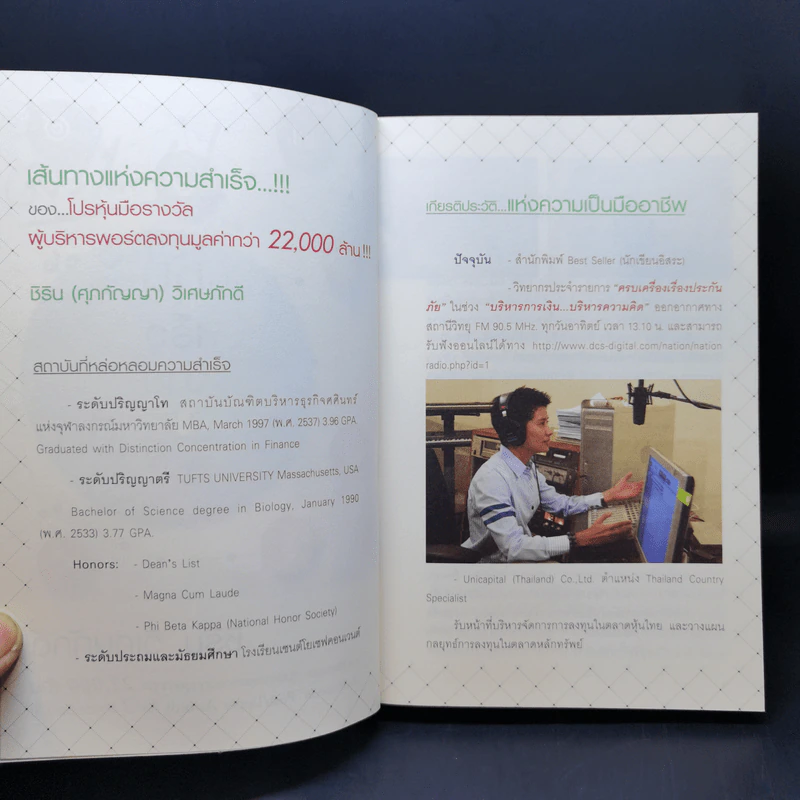 เส้นทางแห่งความสำเร็จ...!!!
ของ...โปรหุ้นมือรางวัล
ผู้บริหารพอร์ตลงทุนมูลค่ากว่า 22,000 ล้าน!!!
ชิริน (ศุภกัญญา) วิเศษภักดี
สถาบันที่หล่อหลอมความสำเร็จ
- ระดับปริญญาโท สถาบันบัณฑิตบริหารธุรกิจศศินทร์
แห่งจุฬาลงกรณ์มหาวิทยาลัย MBA, March 1997 (พ.ศ. 2537) 3.96 GPA.
Graduated with Distinction Concentration in Finance
- ระดับปริญญาตรี TUFTS UNIVERSITY Massachusetts, USA
Bachelor of Science degree in Biology, January 1990
(พ.ศ. 2533) 3.77 GPA.
Honors: - Dean's List
- Magna Cum Laude
- Phi Beta Kappa (National Honor Society)
- ระดับประถมและมัธยมศึกษา โรงเรียนเซนต์โยเซฟคอนเวนต์
เกียรติประวัติ...แห่งความเป็นมืออาชีพ
ปัจจุบัน - สำนักพิมพ์ Best Seller (นักเขียนอิสระ)
- วิทยากรประจำรายการ "ครบเครื่องเรื่องประกัน
ภัย" ในช่วง "บริหารการเงิน...บริหารความคิด" ออกอากาศทาง
สถานีวิทยุ FM 90.5 MHz. ทุกวันอาทิตย์ เวลา 13.10 น. และสามารถ
รับฟังออนไลน์ได้ทาง http://www.dcs-digital.com/nation/nation
radio.php?id=1
- Unicapital (Thailand) Co.,Ltd. ตำแหน่ง Thailand Country
Specialist
รับหน้าที่บริหารจัดการการลงทุนในตลาดหุ้นไทย และวางแผน
กลยุทธ์การลงทุนในตลาดหลักทรัพย์